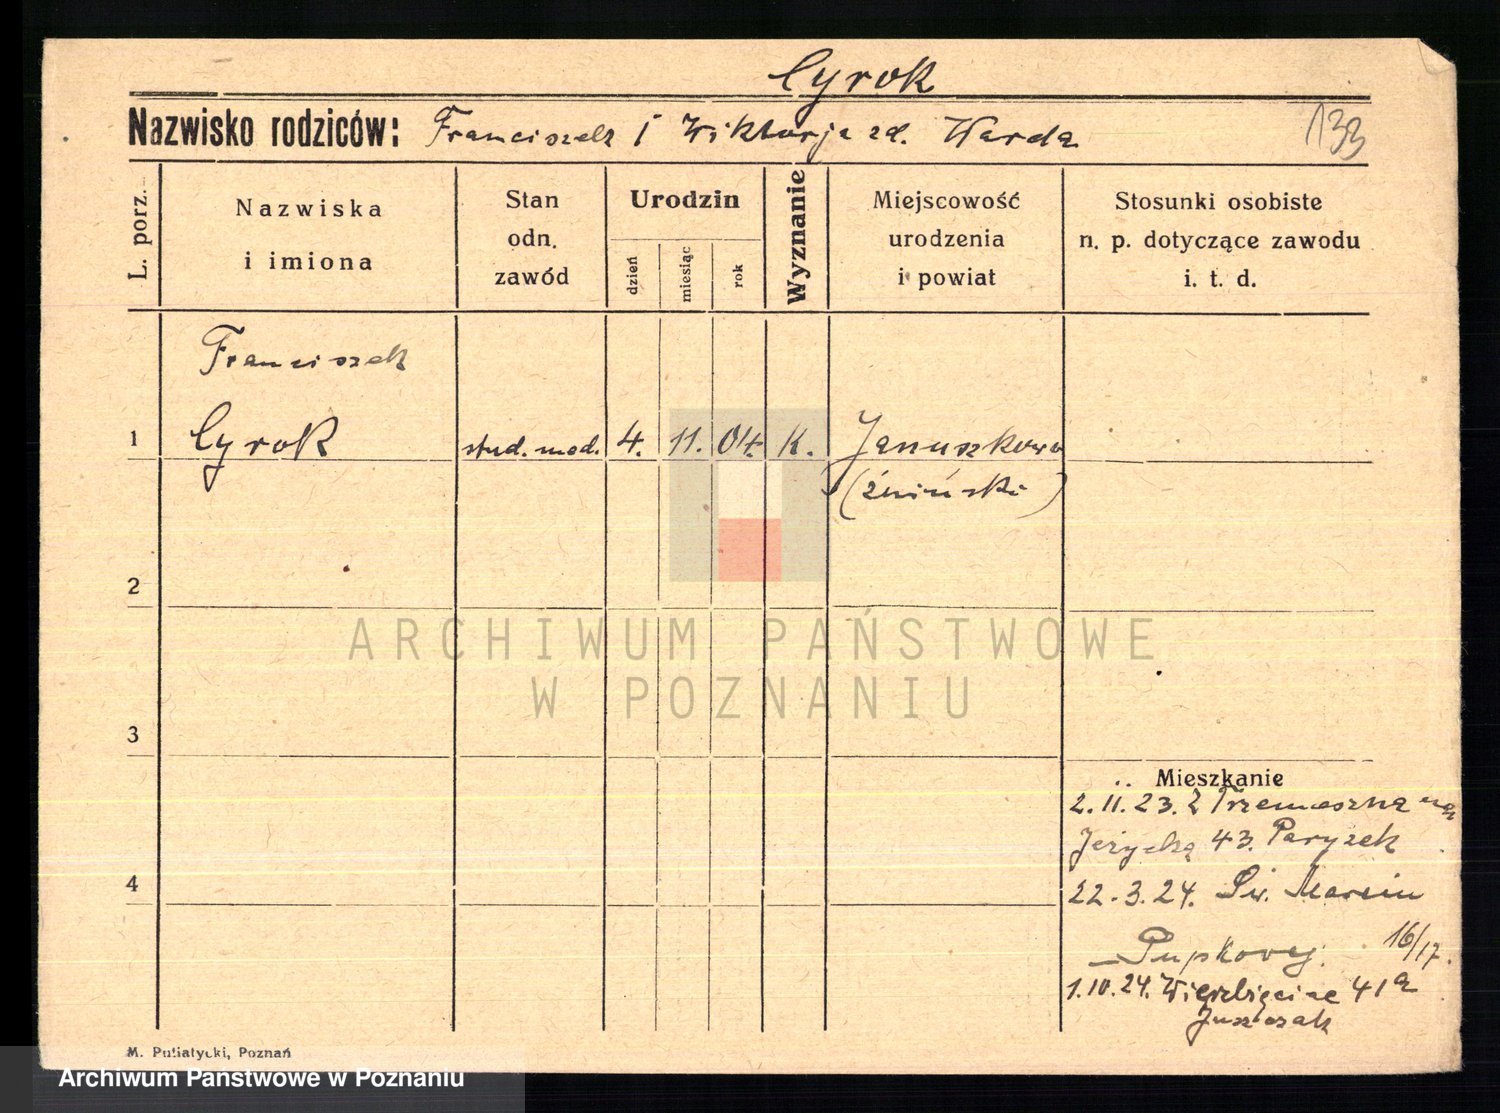 Cyrok
Nazwisko rodziców: Franciszek i Wiktorja zd. Warda
133
L. porz.
Nazwiska
i imiona
Stan
odn.
zawód
Urodzin
dzień
miesiąc
rok
Wyznanie
Miejscowość
urodzenia
i powiat
Stosunki osobiste
n. p. dotyczące zawodu
i. t. d.
Franciszek
1 Cyrok stud. med. 4. 11. 04. K. Januszkowo
(żniński)
2
ARCHIWUM PAŃSTWOWE
W POZNANIU
3
Mieszkanie
2.11.23. z Trzemeszna na
Jeżycką 43. Paryzek
4
22.3.24. Św. Marcin
16/17.
Pupkovej.
1.10.24. Wierzbięcice 41a
Juszczak
M. Putiatycki, Poznań
Archiwum Państwowe w Poznaniu